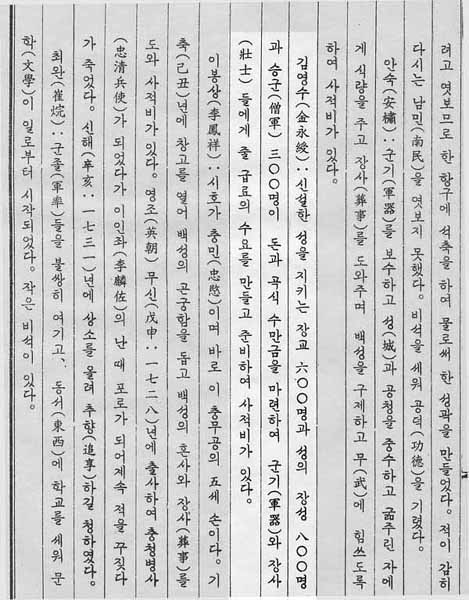 려고 엿보므로 한 항구에 석축을 하여 물로써 한 성곽을 만들었다. 적이 감히
다시는 남민(南民)을 엿보지 못했다. 비석을 세워 공덕(功德)을 기렸다.
안숙(安橚)::군기(軍器)를 보수하고 성(城)과 공청을 중수하고 굶주린 자에
게 식량을 주고 장사(葬事)를 도와주며 백성을 구제하고 무(武)에 힘쓰도록
하여 사적비가 있다.
김영수(金永綬)::신설한 성을 지키는 장교 六○○명과 성의 장성 八○○명
과 승군(僧軍) 三○○명이 돈과 곡식 수만금을 마련하여 군기(軍器)와 장사
(壯士) 들에게 줄 급료의 수요를 만들고 준비하여 사적비가 있다.
이봉상(李鳳祥)::시호가 충민(忠愍)이며 바로 이 충무공의 五세 손이다. 기
축(己丑)년에 창고를 열어 백성의 곤궁함을 돕고 백성의 혼사와 장사(葬事)를
도와 사적비가 있다. 영조(英朝) 무신(戊申::一七二八)년에 출사하여 충청병사
(忠清兵使)가 되었다가 이인좌(李麟佐)의 난 때 포로가 되어계속 적을 꾸짖다
가 죽었다. 신해(辛亥::一七三一)년에 상소를 올려 추향(追享)하길 청하였다.
최완(崔烷)::군졸(軍率)들을 불쌍히 여기고、동서(東西)에 학교를 세워 문
학(文學)이 일로부터 시작되었다. 작은 비석이 있다.